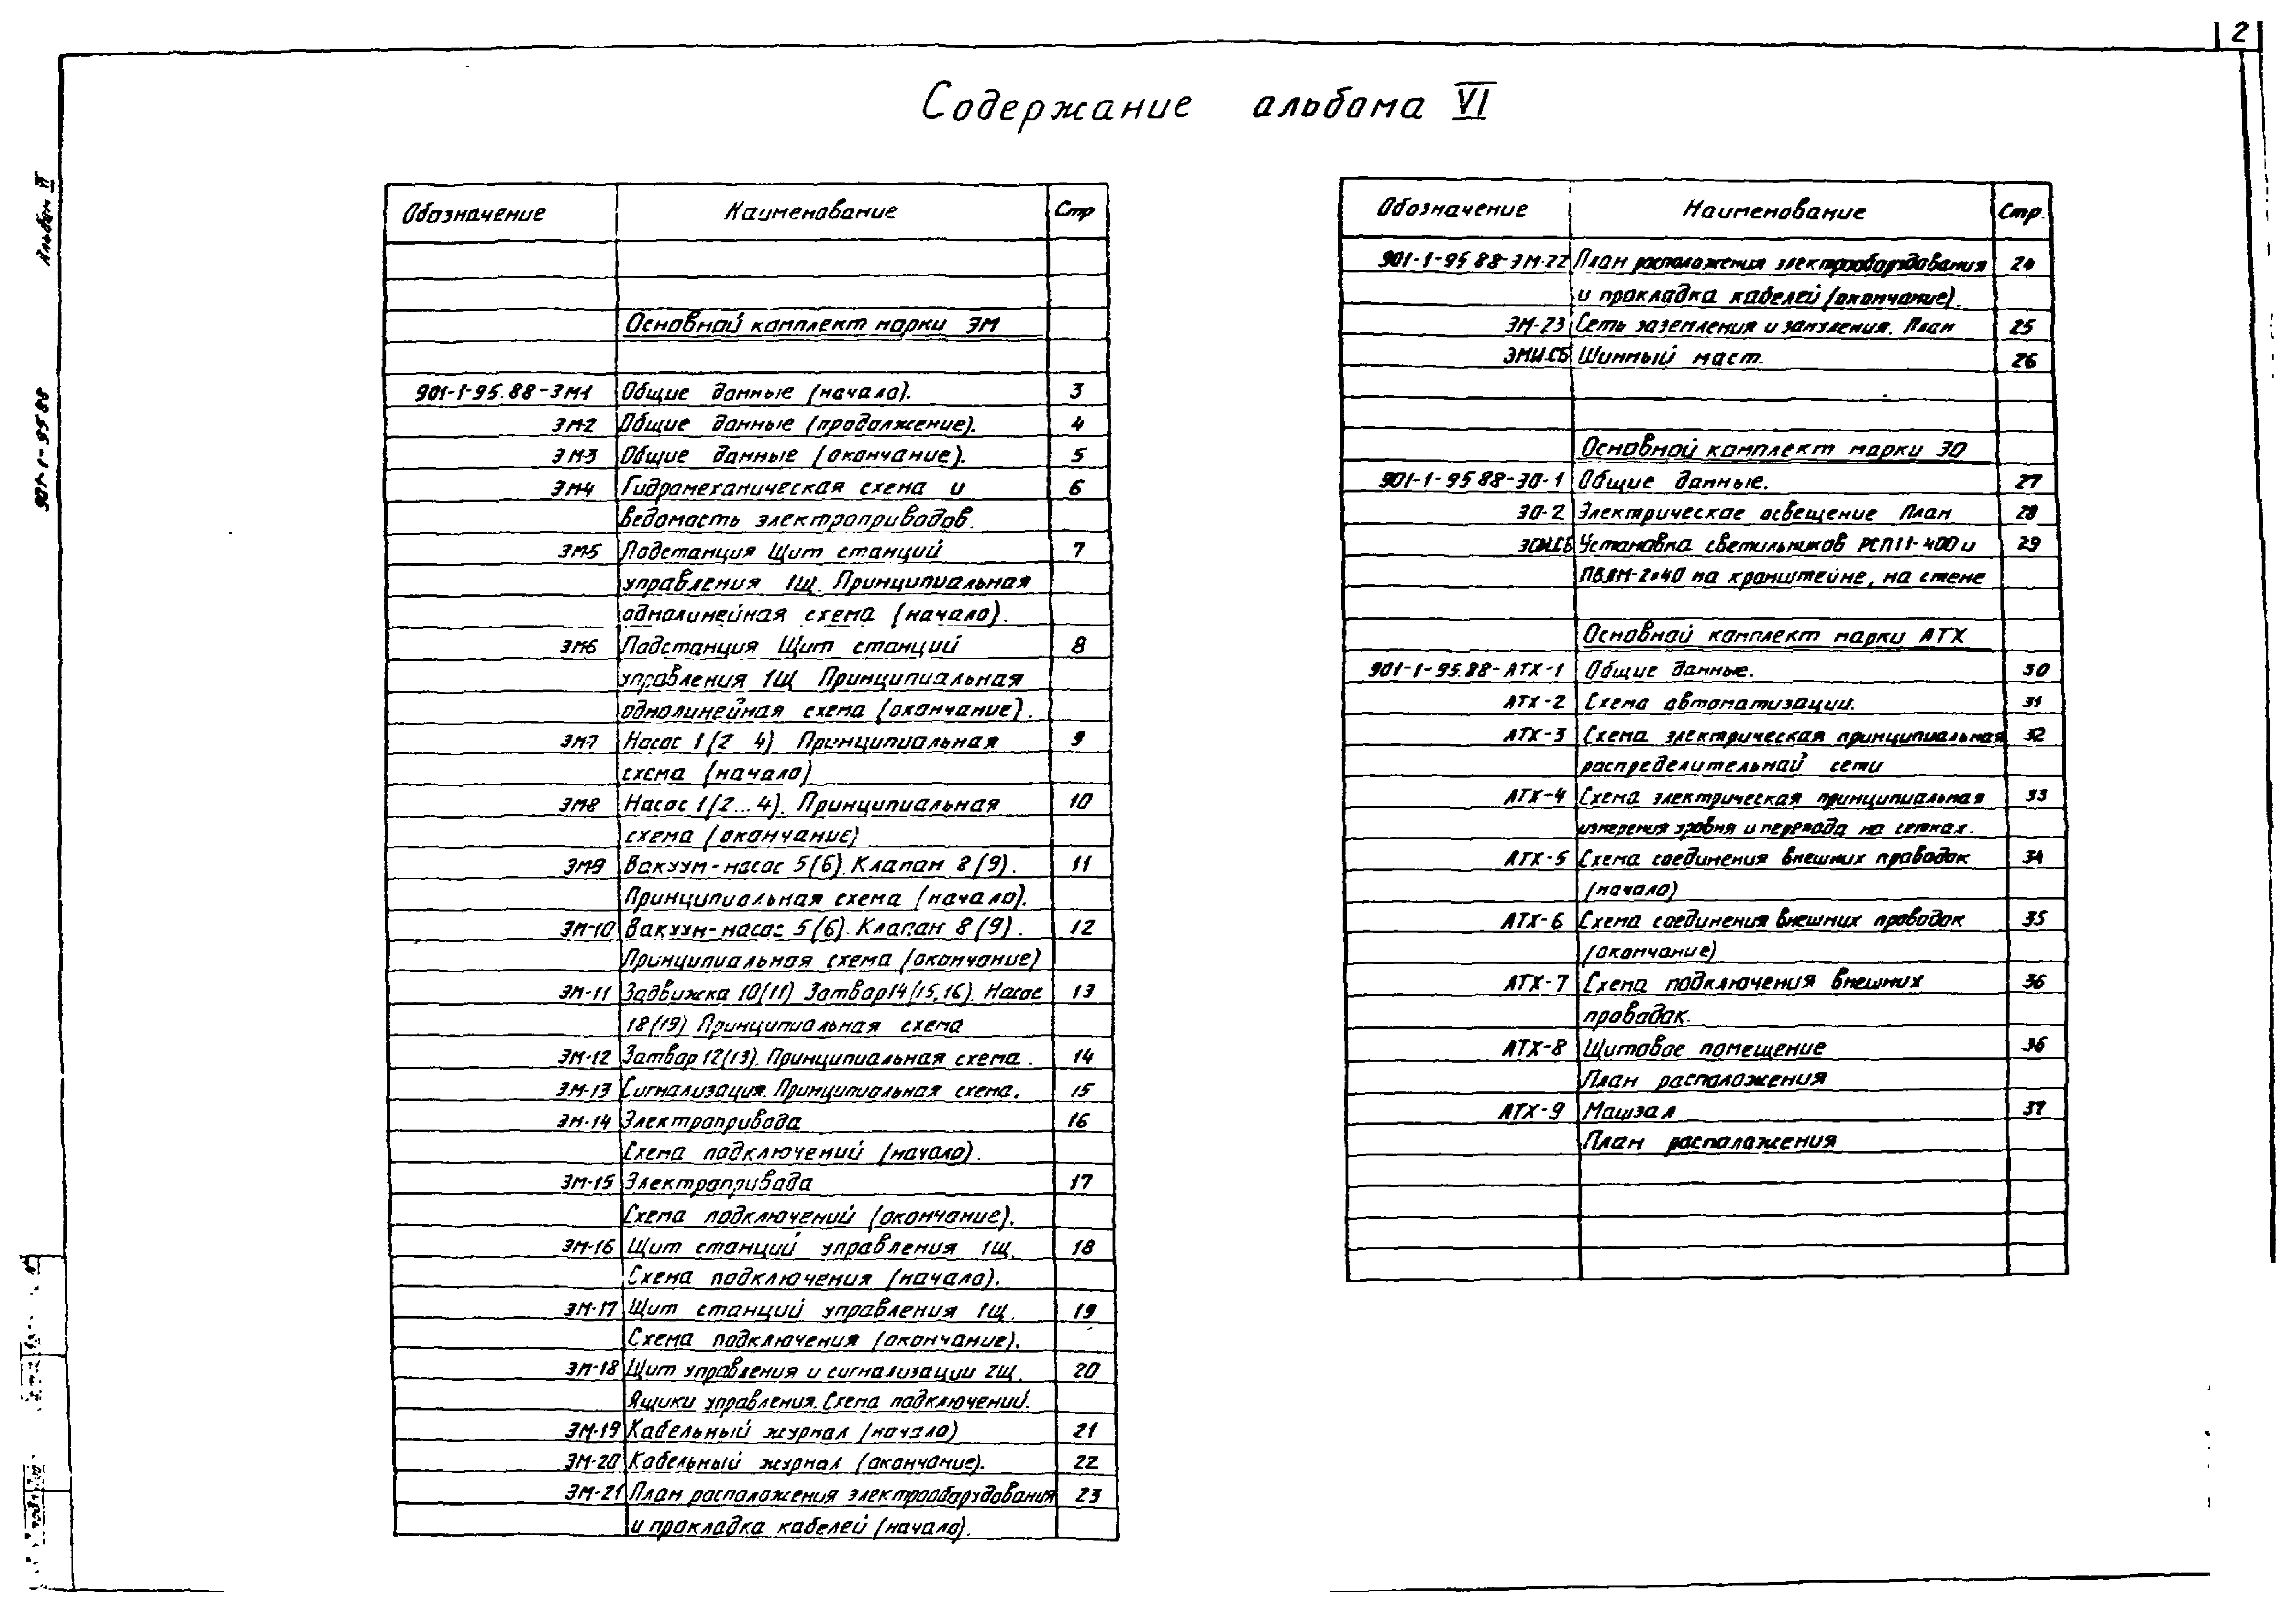 2
Содержание альбома VI
Альбом VI
901-1-95 88
Обозначение Наименование Стр
Основной комплект марки ЭМ
901-1-95.88-ЭМ1 Общие данные (начало). 3
ЭМ2 Общие данные (продолжение). 4
ЭМ3 Общие данные (окончание). 5
ЭМ4 Гидромеханическая схема и 6
ведомасть электроприводов.
ЭМ5 Подстанция Щит станций 7
управления 1Щ. Принципиальная
однолинейная схема (начало).
ЭМ6 Подстанция Щит станций 8
управления 1Щ Принципиальная
однолинейная схема (окончание).
ЭМ7 Насос 1(2 4) Принципиальная 9
схема (начало)
ЭМ8 Насос 1(2...4). Принципиальная 10
схема (окончание)
ЭМ9 Вакуум-насос 5(6). Клапан 8(9). 11
Принципиальная схема (начало).
ЭМ-10 Вакуум-насос 5(6). Клапан 8(9). 12
Принципиальная схема (окончание)
ЭМ-11 Задвижка 10(11) Затвор14(15,16). Насос 13
18(19) Принципиальная схема
ЭМ-12 Затвор 12(13). Принципиальная схема. 14
ЭМ-13 Сигнализация. Принципиальная схема. 15
ЭМ-14 Электропривода 16
Схема подключений (начало).
ЭМ-15 Электропривода 17
Схема подключений (окончание).
ЭМ-16 Щит станций управления 1Щ. 18
Схема подключения (начало).
ЭМ-17 Щит станций управления 1Щ. 19
Схема подключения (окончание).
ЭМ-18 Щит управления и сигнализации 2Щ. 20
Ящики управления. Схема подключений.
ЭМ-19 Кабельный журнал (начало) 21
ЭМ-20 Кабельный журнал (окончание). 22
ЭМ-21 План расположения электрооборудования 23
и прокладка кабелей (начало).
Обозначение Наименование Стр.
901-1-95 88-ЭМ-22 План расположения электрооборудования 24
и прокладка кабелей (окончание).
ЭМ-23 Сеть заземления и зануления. План 25
ЭМИ.СБ Шинный мост. 26
Основной комплект марки ЭО
901-1-95 88-ЭО-1 Общие данные. 27
ЭО-2 Электрическое освещение План 28
ЭОИ.СБ Установка светильников РСП11-400 и 29
ПВЛМ-2×40 на кронштейне, на стене
Основной комплект марки АТХ
901-1-95.88-АТХ-1 Общие данные. 30
АТХ-2 Схема автоматизации. 31
АТХ-3 Схема электрическая принципиальная 32
распределительной сети
АТХ-4 Схема электрическая принципиальная 33
измерения уровня и перепада на сетках.
АТХ-5 Схема соединения внешних проводок 34
(начало)
АТХ-6 Схема соединения внешних проводок 35
(окончание)
АТХ-7 Схема подключения внешних 36
проводок.
АТХ-8 Щитовое помещение 36
План расположения
АТХ-9 Машзал 37
План расположения